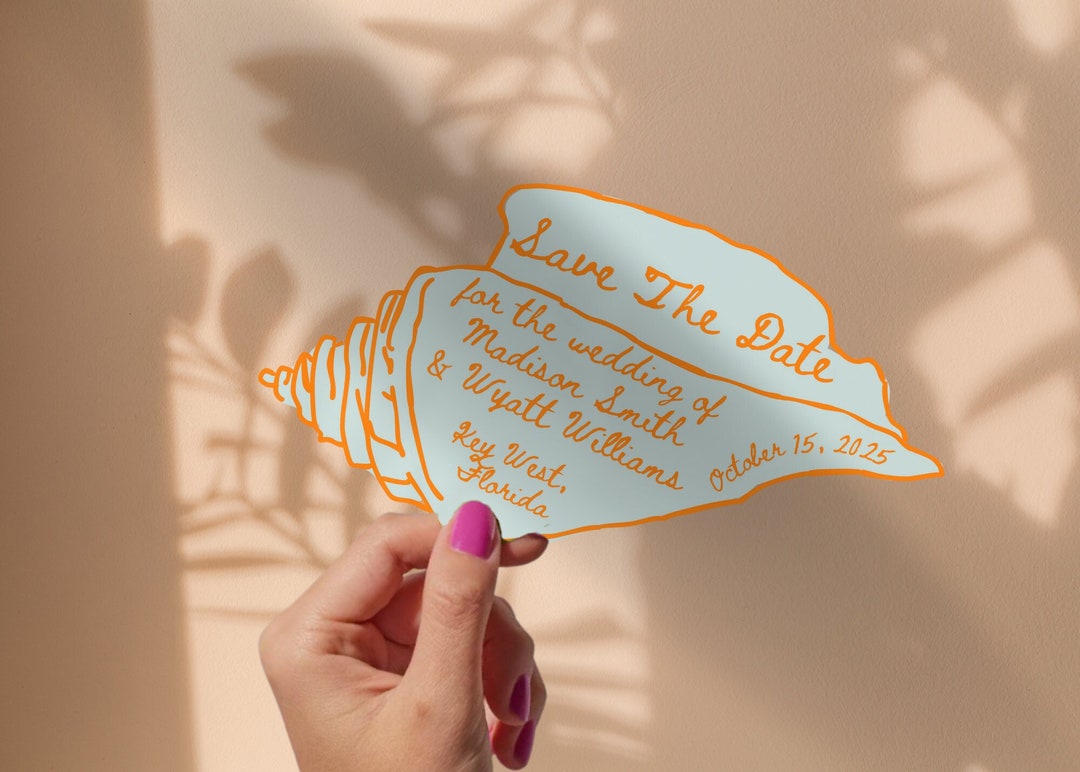 Save The Date
for the wedding of
Madison Smith
& Wyatt Williams
Key West,
Florida
October 15, 2025